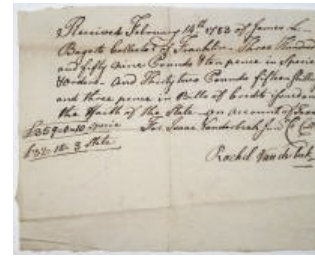 Received February 14th 1783 of James
Collector of Franklin Three Hundred
and fifty nine Pounds & ten pence in Specie
orders. And Thirty two Pounds fifteen shill
and three pence in Bills of Credit
the Faith of the State on account of
£359-0-10 specie For Isaac Vanderbeek Junr
£32-15-3 State
Rachel Vanderbeek